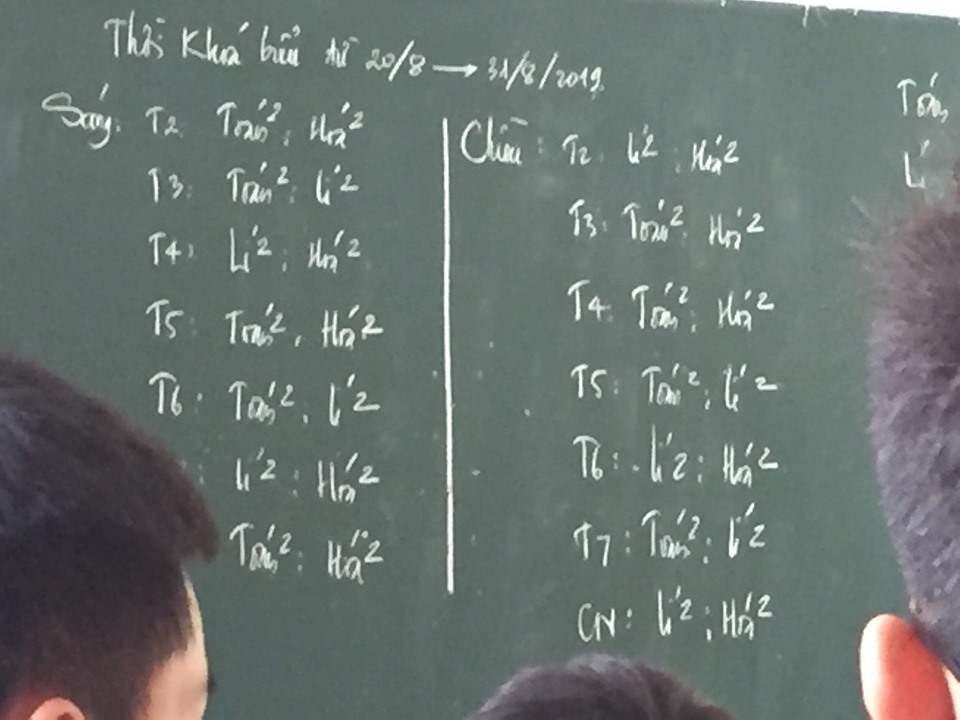 Thời Khoá biểu từ 20/8 → 31/8/2019
Sáng: T2 Toán 2; Hoá 2
T3: Toán 2; Lí 2
T4: Lí 2; Hoá 2
T5: Toán 2; Hoá 2
T6: Toán 2; Lí 2
: Lí 2; Hoá 2
Toán 2; Hoá 2
Chiều: T2 Lí 2; Hoá 2
T3: Toán 2; Hoá 2
T4: Toán 2; Hoá 2
T5: Toán 2; Lí 2
T6: Lí 2; Hoá 2
T7: Toán 2; Lí 2
CN: Lí 2; Hoá 2
Toán
Lí